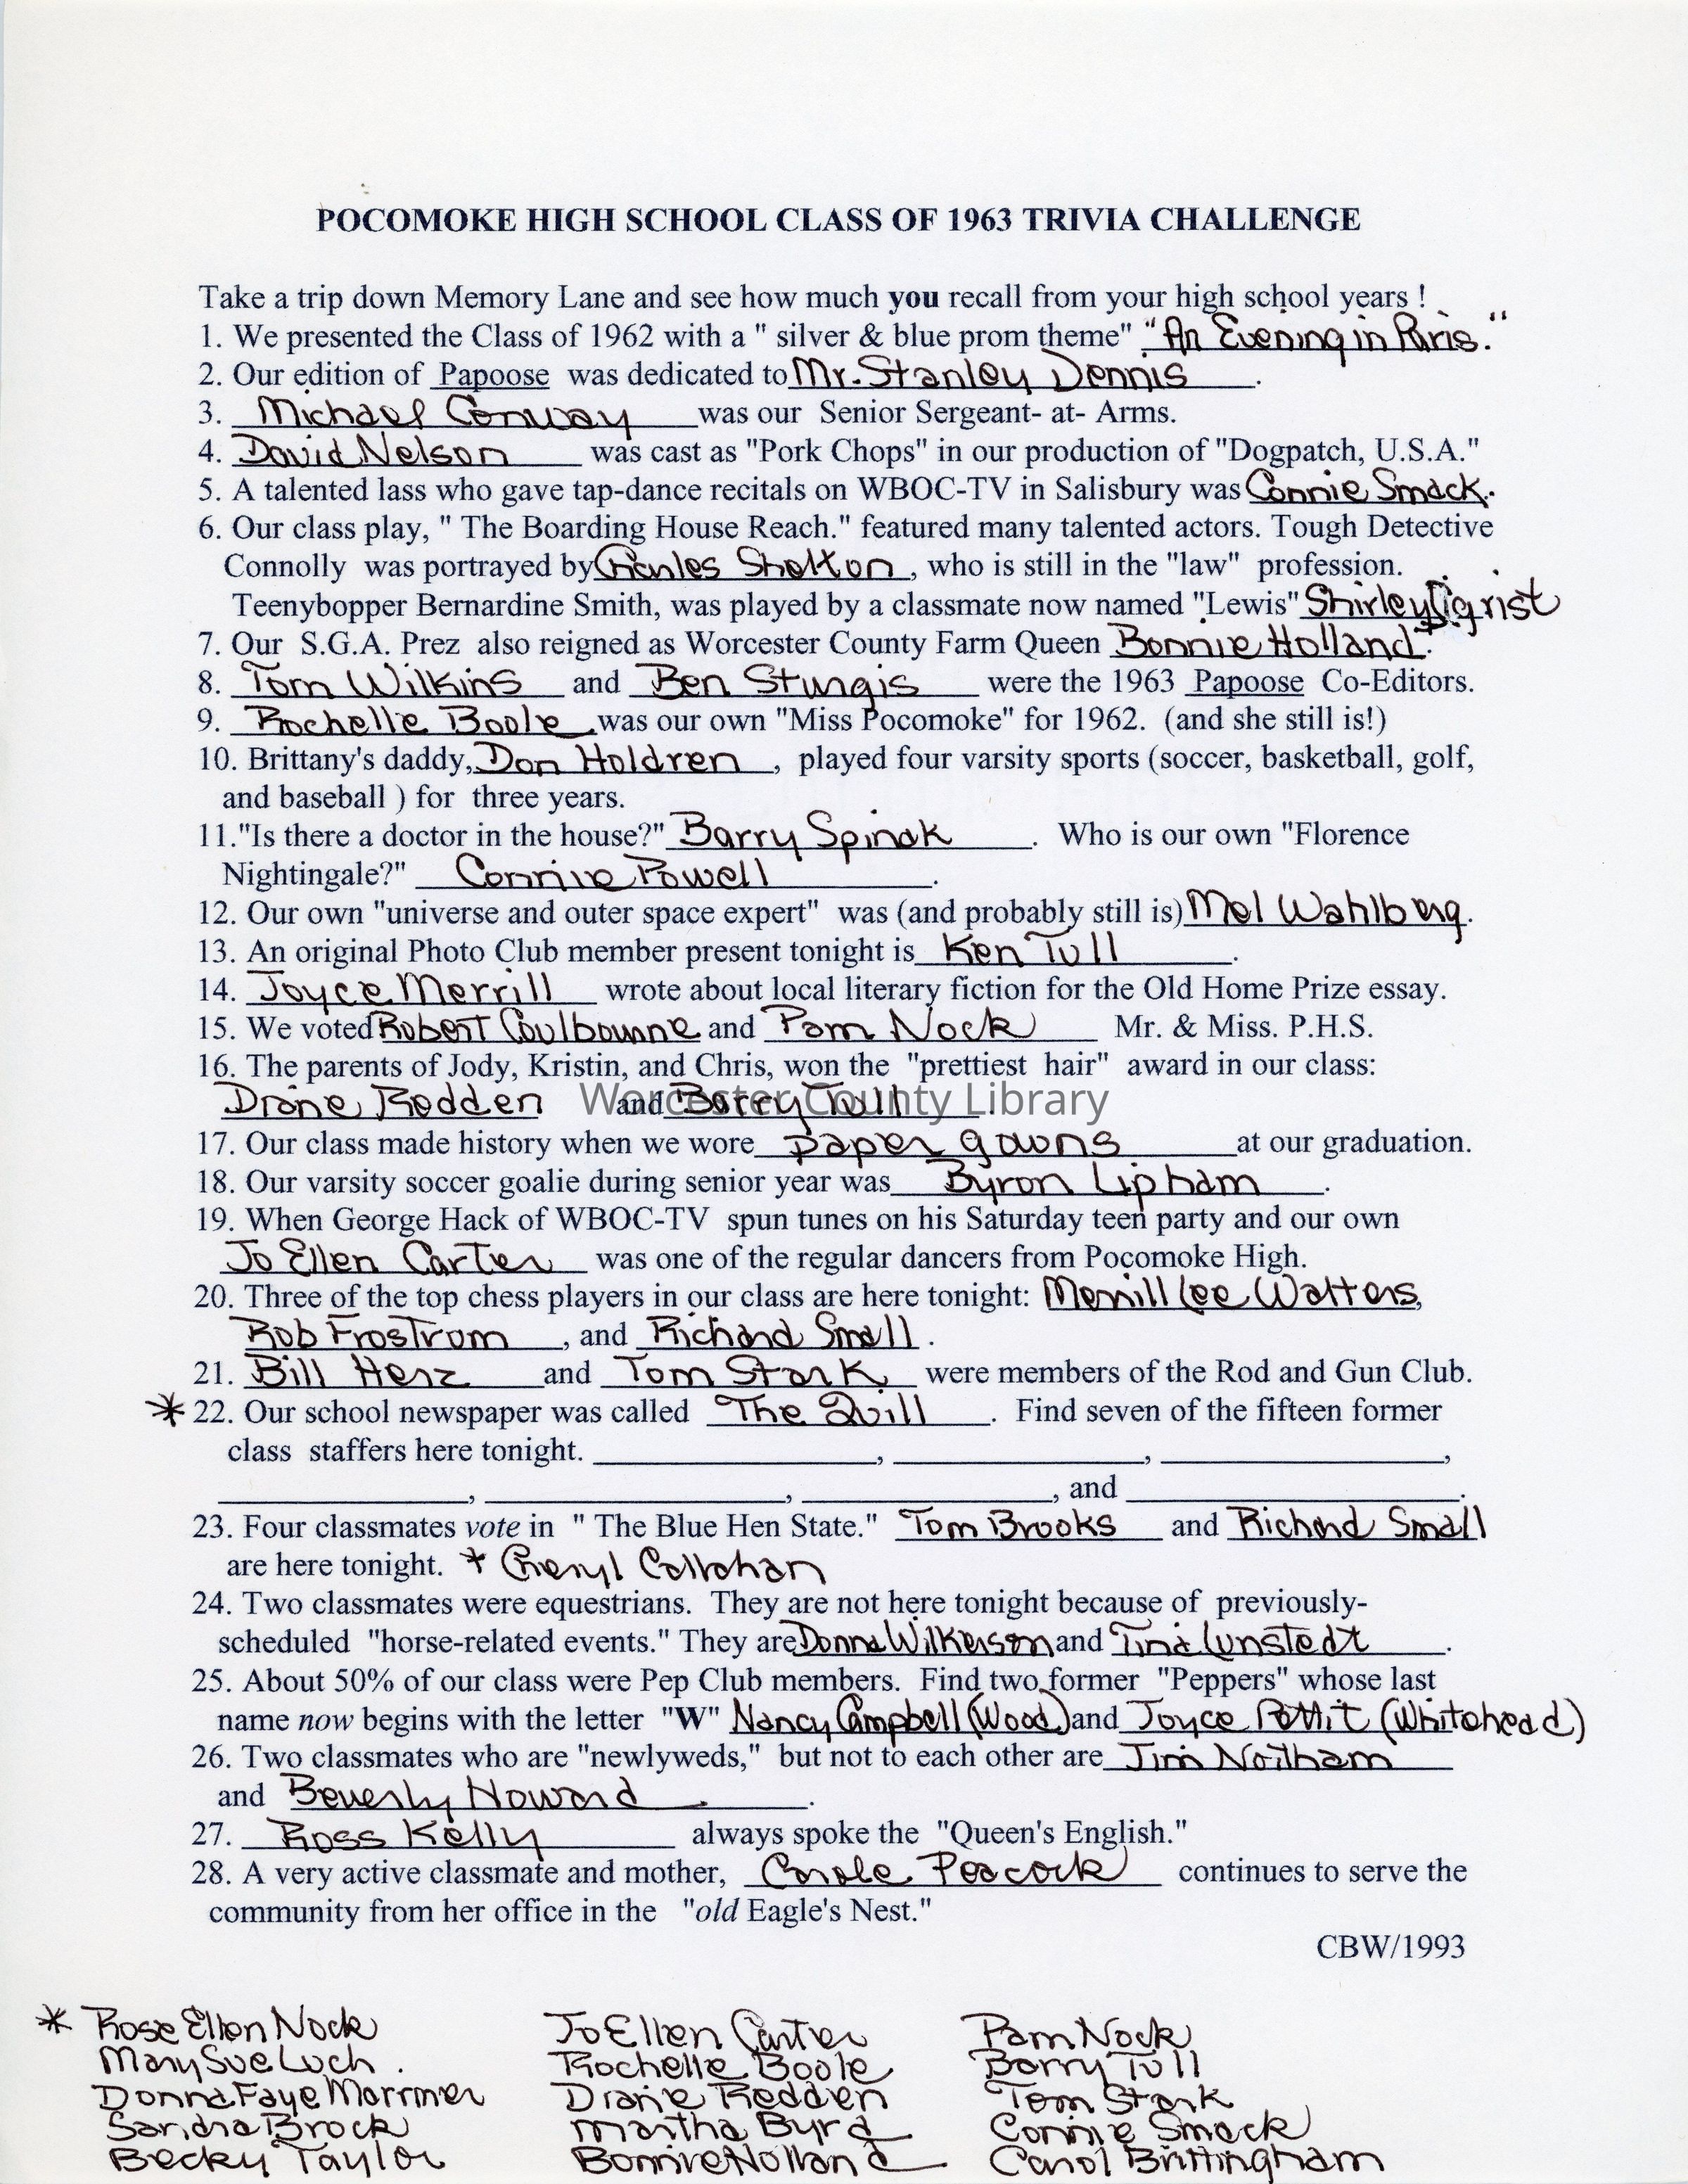 POCOMOKE HIGH SCHOOL CLASS OF 1963 TRIVIA CHALLENGE
Take a trip down Memory Lane and see how much you recall from your high school years !
1. We presented the Class of 1962 with a " silver & blue prom theme" "An Evening in Paris."
2. Our edition of Papoose was dedicated to Mr. Stanley Dennis.
3. Michael Conway was our Senior Sergeant- at- Arms.
4. David Nelson was cast as "Pork Chops" in our production of "Dogpatch, U.S.A."
5. A talented lass who gave tap-dance recitals on WBOC-TV in Salisbury was Connie Smack.
6. Our class play, " The Boarding House Reach." featured many talented actors. Tough Detective
Connolly was portrayed by Charles Shelton, who is still in the "law" profession.
Teenybopper Bernardine Smith, was played by a classmate now named "Lewis" Shirley
7. Our S.G.A. Prez also reigned as Worcester County Farm Queen Bonnie Holland.
8. Tom Wilkins and Ben Sturgis were the 1963 Papoose Co-Editors.
9. Rochelle Boole was our own "Miss Pocomoke" for 1962. (and she still is!)
10. Brittany's daddy, Don Holdren, played four varsity sports (soccer, basketball, golf,
and baseball ) for three years.
11."Is there a doctor in the house?" Barry Spinak. Who is our own "Florence
Nightingale?" Connie Powell.
12. Our own "universe and outer space expert" was (and probably still is) Mel Wahlberg.
13. An original Photo Club member present tonight is Ken Tull.
14. Joyce Merrill wrote about local literary fiction for the Old Home Prize essay.
15. We voted Robert Coulbourne and Pam Nock Mr. & Miss. P.H.S.
16. The parents of Jody, Kristin, and Chris, won the "prettiest hair" award in our class:
Diane Redden and Barry Tull.
Worcester County Library
17. Our class made history when we wore paper gowns at our graduation.
18. Our varsity soccer goalie during senior year was Byron Lipham.
19. When George Hack of WBOC-TV spun tunes on his Saturday teen party and our own
Jo Ellen Carter was one of the regular dancers from Pocomoke High.
20. Three of the top chess players in our class are here tonight: Merrill Lee Watters,
Rob Frostrom, and Richard Small.
21. Bill Herz and Tom Stark were members of the Rod and Gun Club.
* 22. Our school newspaper was called The Quill. Find seven of the fifteen former
class staffers here tonight. , , ,
, , , and .
23. Four classmates vote in " The Blue Hen State." Tom Brooks and Richard Small
are here tonight. * Cheryl Callahan
24. Two classmates were equestrians. They are not here tonight because of previously-
scheduled "horse-related events." They are Donna Wilkerson and Tina Lunstedt.
25. About 50% of our class were Pep Club members. Find two former "Peppers" whose last
name now begins with the letter "W" Nancy Campbell (Wood) and Joyce Pettit (Whitehead)
26. Two classmates who are "newlyweds," but not to each other are Jim Northam
and Beverly Howard.
27. Ross Kelly always spoke the "Queen's English."
28. A very active classmate and mother, Carole Peacock continues to serve the
community from her office in the "old Eagle's Nest."
CBW/1993
* Rose Ellen Nock Jo Ellen Carter Pam Nock
Mary Sue Luch. Rochelle Boole Barry Tull
Donna Faye Morrmer Diane Redden Tom Stark
Sandra Brock Martha Byrd Connie Smack
Becky Taylor Bonnie Holland Carol Brittingham